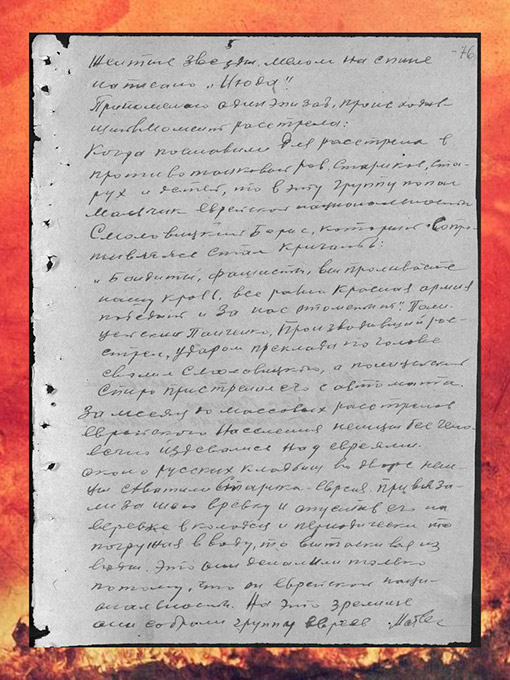 -76
желтые звезды. мелом на спине
написано „Июда“.
Припоминаю один эпизод, происходив-
ший в момент расстрела:
Когда поставили для расстрела в
противотанковой ров, стариков, ста-
рух и детей, то в эту группу попал
мальчик еврейской национальности
Смоловицкий Борис, который сопро-
тивляясь стал кричать:
„Бандиты, фашисты, вы проливаете
нашу кровь, все равно Красная армия
победит и за нас отомстит“. Поли-
цейский Панченко, производивший рас-
стрел, ударом приклада по голове
свалил Смоловицкого, а полицейский
Стиро пристрелил его с автомата.
За месяц до массовых расстрелов
еврейского населения немцы бесчело-
вечно издевались над евреями.
около русских кладбищ во дворе нем-
цы схватили старика-еврея. привяза-
ли за шею вревку и опустив его на
веревке в колодец и периодически то
погружая в воду, то вытаскивая из
воды. Это они делали только
потому, что он еврейской наци-
ональности. На это зрелище
они собрали группу евреев.